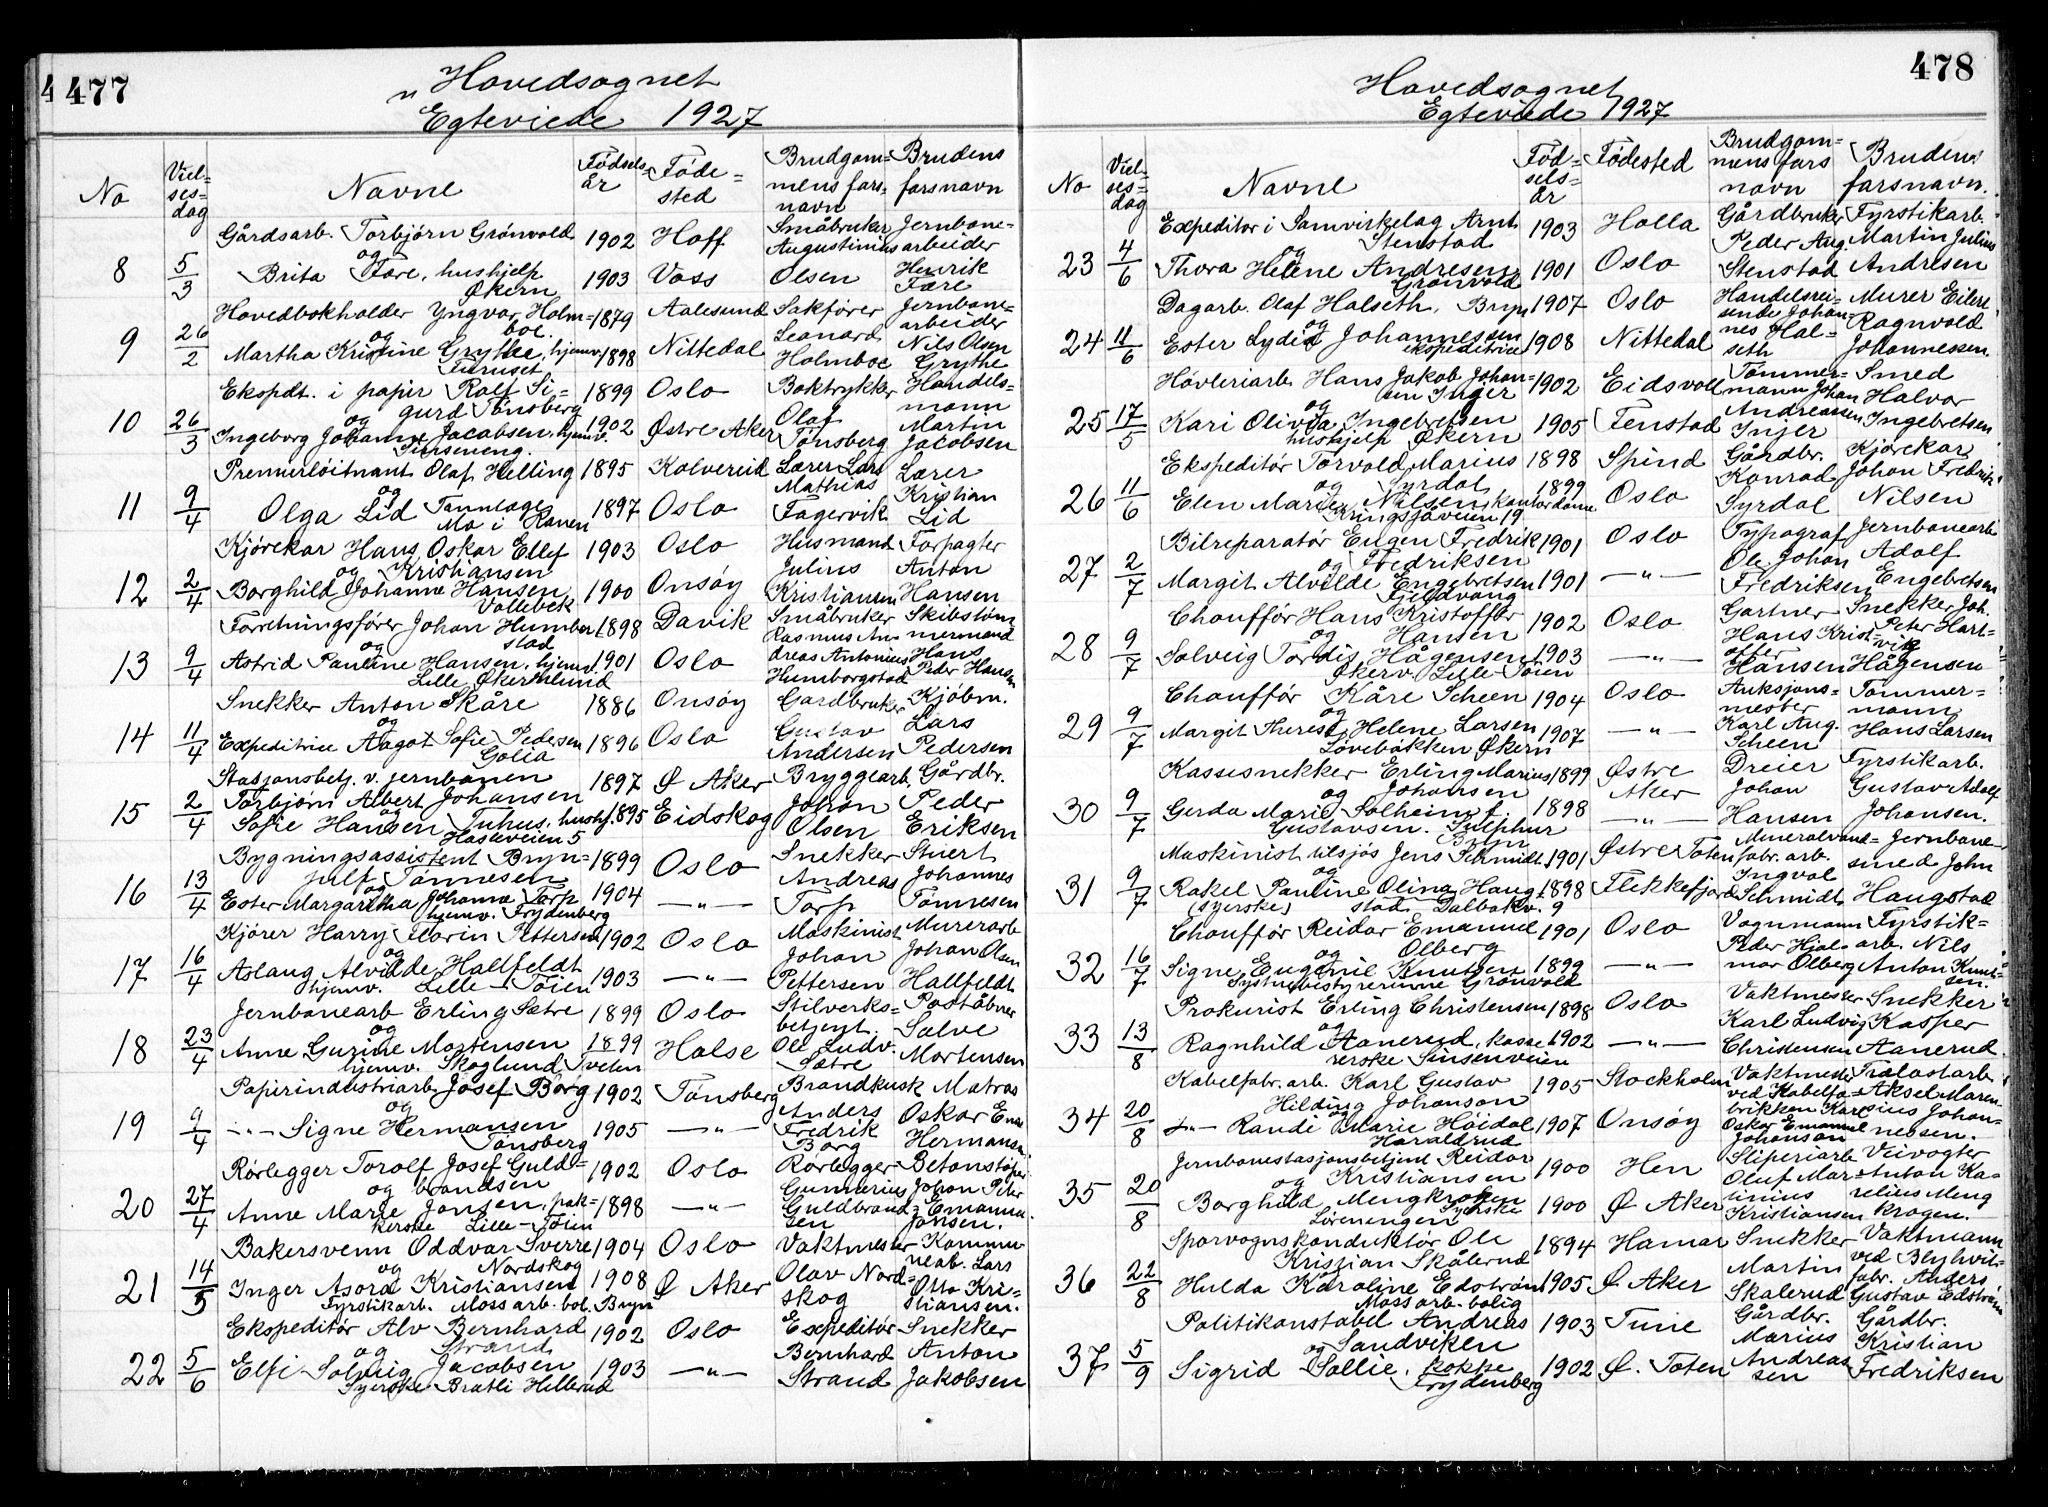 477
Hovedsognet
Egteviede 1927
No
Viel=
ses=
dag
Navne
Fødsels
år
Føde=
sted
Brudgom=
mens fars=
navn
Brudens
farsnavn
8
5/3
Gårdsarb. Torbjørn Grönvold
og
Brita Fære, hushjelp
Økern
1902
1903
Hoff
Voss
Småbruker
Augustinius
Olsen
Jernbane=
arbeider
Henrik
Fære
9
26/2
Hovedbokholder Yngvar Holm=
og boe.
Martha Kristine Grythe, hjemv.
Furuset
1879
1898
Aalesund
Nittedal
Sakfører
Leonard
Holmboe
Jernbane=
arbeider
Nils Olsen
Grythe
10
26/3
Ekspdt. i papir Rolf Si=
og gurd Tönsberg
Ingeborg Johanne Jacobsen, hjemv.
1899
1902
Oslo
Østre Aker
Boktrykker
Olaf
Tönsberg
Handels=
mann
Martin
Jacobsen
11
9/4
Premierløitnant Olaf Helling
og
Olga Lid
Mo i Ranen
1895
1897
Kolvereid
Oslo
Lærer Lars
Mathias
Fagervik
Lærer
Kristian
Lid
12
2/4
Kjørekar Hans Oskar Ellef
og Kristiansen
Borghild Johanne Hansen
Vollebek
1903
1900
Oslo
Onsøy
Husmand
Julius
Kristiansen
Forpagter
Anton
Hansen
13
9/4
Forretningsfører Johan Humbor=
og stad
Astrid Pauline Hansen, hjemv.
Lille Økernlund
1898
1901
Davik
Oslo
Småbruker
Rasmus An=
dreas Antonius
Humborgstad
Skibstøm
mermand
Hans
Peder Hansen
14
11/4
Snekker Anton Skåre
og
Expeditrice Aagot Sofie Pedersen
Golia
1886
1896
Onsøy
Oslo
Gardbruker
Gustav
Andersen
Kjøbm.
Lars
Pedersen
15
2/4
Stasjonsbetj. v. jernbanen
Torbjørn Albert Johansen
og
Sofie Hansen Tuhus, hushj.
Hasleveien 5
1897
1895
Ø Aker
Eidskog
Bryggearb.
Johan
Olsen
Gårdbr.
Peder
Eriksen
16
13/4
Bygningsassistent Bryn=
julf Tönnesen
og
Ester Margaretha Johanne Torp
hjemv. Frydenberg
1899
1904
Oslo
—"—
Snekker
Andreas
Torp
Stuert
Johannes
Tönnesen
17
16/4
Kjører Harry Florin Pettersen
og
Aslaug Alvilde Hallfeldt
hjemv. Lille-Töien
1902
1903
Oslo
—"—
Maskinist
Johan
Pettersen
Murerarb
Johan Olsen
Hallfeldt
18
23/4
Jernbanearb Erling Sætre
og
Anne Gurine Mortensen
hjemv. Skoglund Tveten
1899
1899
Oslo
Halse
Stilverks=
betjent.
Ole Ludv.
Sætre
Poståbner
Salve
Mortensen
19
9/4
Papirindustriarb Josef Borg
og
—"— Signe Hermansen
Tönsberg
1902
1905
Tönsberg
—"—
Brandkusk
Anders
Fredrik
Borg
Matros
Oskar Emil
Hermansen
20
27/4
Rørlegger Torolf Josef Guld=
og brandsen
Anne Marie Jonsen, pak=
kerske Lille-Töien
1902
1898
Oslo
—"—
Rørlegger
Gunnerius
Guldbrand=
sen
Betonstøper
Johan Peter
Emanuel
Jonsen.
21
14/5
Bakersvenn Oddvar Sverre
og Nordskog
Inger Asora Kristiansen
Fyrstikarb. Moss arb. bol. Bryn
1904
1908
Oslo
Ø Aker
Vaktmester
Olav Nord=
skog
Kommu
nearb. Lars
Otto Kri=
stiansen.
22
5/6
Ekspeditör Alv Bernhard
og Strand
Elfi Solveig Jacobsen
Syerske Bratli Hillerud
1902
1903
Oslo
—"—
Expeditör
Bernhard
Strand
Snekker
Anton
Jakobsen
478
Hovedsognet
Egteviede 1927
No
Viel=
ses=
dag
Navne
Fød=
sels=
år
Fødested
Brudgom=
mens fars
navn
Brudens
farsnavn.
23
4/6
Expeditor i Samvirkelag Arnt
og Stenstad
Thora Helene Andresen
Grönvold
1903
1901
Holla
Oslo
Gårdbruker
Peder Aug.
Stenstad
Fyrstikarb.
Martin Julius
Andresen
24
11/6
Dagarb. Olaf Halseth, Bryn
og
Ester Lydia Johannessen
ekspeditrice
1907
1908
Oslo
Nittedal
Handelsrei=
sende Johan=
nes Hal=
seth
Murer Eilert
Ragnvald
Johannessen.
25
17/5
Høvleriarb Hans Jakob Johan=
og sen Injer
Kari Olivia Ingebretsen
hushjelp Økern
1902
1905
Eidsvoll
Fenstad
Tömmer=
mann Johan
Andreassen
Injer
Smed
Halvor
Ingebretsen
26
11/6
Ekspeditör Torvald Marius
og Syrdal
Elen Marie Nilsen, kontordame
Kringsjåveien 19
1898
1899
Spind
Oslo
Gårdbr.
Konrad
Syrdal
Kjørekar
Johan Fredrik
Nilsen
27
2/7
Bilreparatör Eugen Fredrik
og Fredriksen
Margit Alvilde Engebretsen
Fjeldvang
1901
1901
Oslo
—"—
Typograf
Ole Johan
Fredriksen
Jernbanearb
Adolf
Engebretsen
28
9/7
Chauffør Hans Kristoffer
og Hansen
Solveig Tordis Hågensen
Økerv. Lille Töien
1902
1903
Oslo
—"—
Gartner
Hans Krist=
offer
Hansen
Snekker Joh.
Peter Hart=
vig
Hågensen
29
9/7
Chauffør Kåre Scheen
og
Margit Therese Helene Larsen
Løvebakken Økern
1904
1907
Oslo
—"—
Auksjons=
mester
Karl Aug.
Scheen
Tömmer=
mann
Hans Larsen
30
9/7
Kassesnekker Erling Marius
og Johansen
Gerda Marie Solheim f.
Gustavsen. Sulphur
Bryn
1899
1898
Østre
Aker
—"—
Dreier
Johan
Hansen
Fyrstikarb.
Gustav Adolf
Johansen.
31
9/7
Maskinist tilsjøs Jens Schmidt
og
Rakel Pauline Olina Haug=
(syerske) stad Dalbakv. 9
1901
1898
Østre Toten
Flekkefjord
Mineralvand=
fabr. arb.
Ingval
Schmidt
Jernbane=
smed John
Haugstad
32
16/7
Chauffør Reidar Emanuel
og Olberg
Signe Eugenie Knutsen
Systuebestyrerinne Grönvold
1901
1899
Oslo
—"—
Vognmann
Peder Hjal=
mar Olberg
Fyrstik=
arb. Nils
Anton Knut=
sen.
33
13/8
Prokurist Erling Christensen
og
Ragnhild Aanerud, kasse=
rerske Sinsenveien
1898
1902
Oslo
—"—
Vaktmester
Karl Ludvig
Christensen
Snekker
Kasper
Aanerud.
34
20/8
Kabelfabr. arb. Karl Gustav
Hilding Johanson
og
—"— Randi Marie Høidal
Haraldrud
1905
1907
Stockholm
Onsøy
Vaktmester
ved Kabelfa=
brikken Karl
Oskar Emanuel
Johanson
Aksel Maren
sius Johan=
nesen.
35
20/8
Jernbanestasjonsbetjent Reidar
og Kristiansen
Borghild Mengkroken
Syerske
Løreningen
1900
1900
Hen
Ø Aker
Sliperiarb
Oluf Mar=
tinius
Kristiansen
Veivogter
Anton Ka=
relius Meng
krogen.
36
22/8
Sporvognskonduktör Ole
Kristian Skålerud
Hulda Karoline Edström
Moss arb. bolig
1894
1905
Hamar
Ø. Aker
Snekker
Martin
Skalerud
Vaktmann
ved Blyhvit=
fabr. Anders
Gustav Edström
37
5/9
Politikonstabel Andreas
og Sandviken
Sigrid Sollie, kokke
Frydenberg
1903
1902
Tune
Ø. Toten
Gårdbr.
Marius
Andreas
sen
Gårdbr.
Kristian
Fredriksen